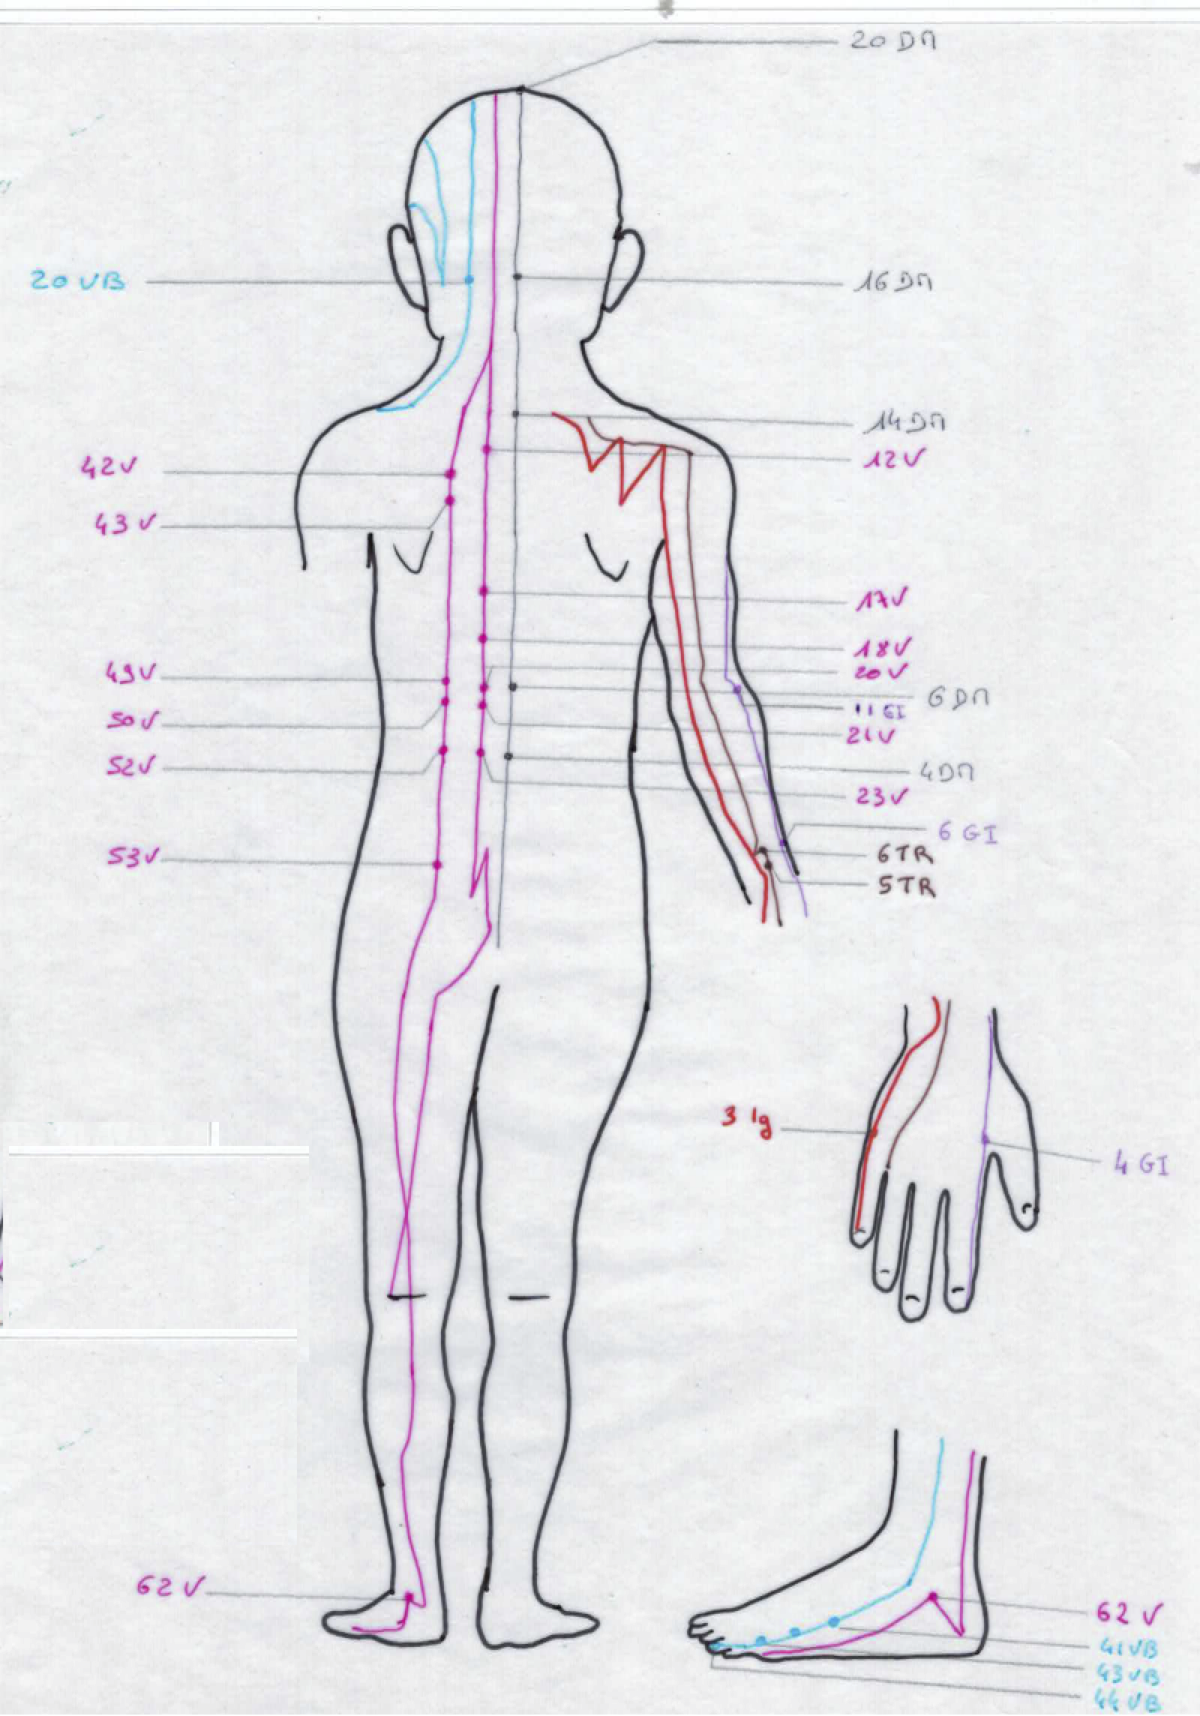 20 DM
20 VB
16 DM
14 DM
42 V
12 V
43 V
17 V
18 V
49 V
20 V
6 DM
11 GI
50 V
21 V
52 V
4 DM
23 V
6 GI
53 V
6 TR
5 TR
3 Ig
4 GI
62 V
62 V
41 VB
43 VB
44 VB